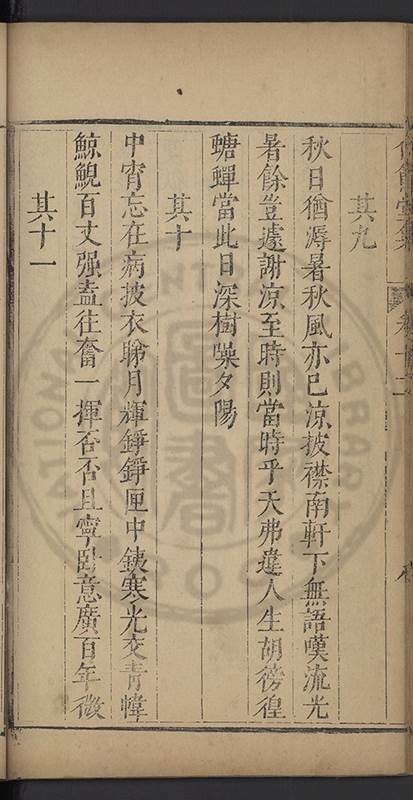 其九
秋日猶溽暑秋風亦已涼披襟南軒下無語嘆流光
暑餘豈遽謝涼至時則當時乎天弗違人生胡徬徨
螗蟬當此日深樹噪夕陽
其十
中宵忘在病披衣睇月輝錚錚匣中鋏寒光交青幃
鯨鯢百丈强盍往奮一揮否否且寧臥意廣百年微
其十一